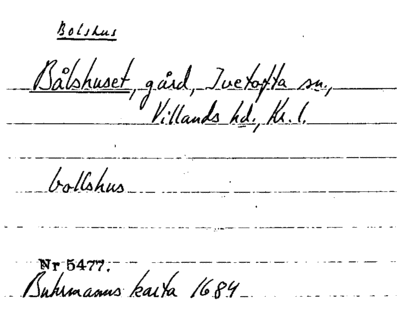 Bolshus
Bålshuset, gård, Ivetofta sn.,
Villands hd., Kr. l.
bollshus
Nr 5477.
Buhrmanns karta 1684